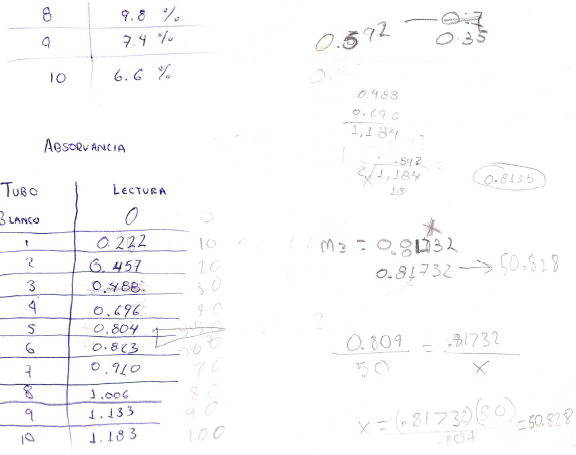 8 9.8 %
9 7.4 %
10 6.6 %
ABSORVANCIA
TUBO LECTURA
BLANCO 0 0
1 0.222 10
2 0.457 20
3 0.488 30
4 0.696 40
5 0.804
6 0.863
7 0.910 70
8 1.006 80
9 1.133 90
10 1.183 100
0.592 — 0.7
0.35
0.
0.488
0.696
1,184
.592
2 1.184
18
0.8135
M3 = 0.81732
0.81732 → 50.828
0.809 = .81732
50 X
X = (.81732)(50) = 50.828
.804